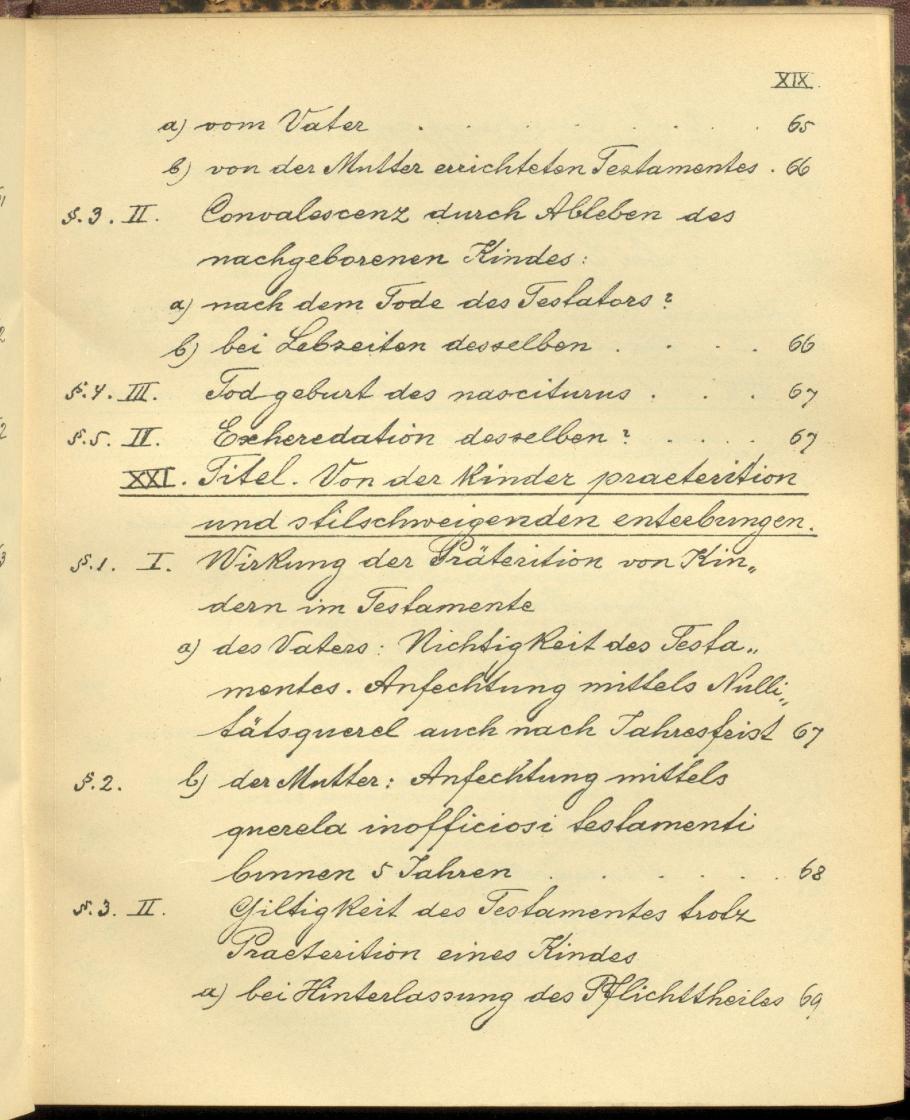 XIX.
a) vom Vater . . . . . . . 65
b) von der Mutter errichteten Testamentes . 66
§. 3. II. Convalescenz durch Ableben des
nachgeborenen Kindes:
a) nach dem Tode des Testators?
b) bei Lebzeiten desselben . . . . 66
§. 4. III. Todgeburt des nasciturus . . . 67
§. 5. IV. Exheredation desselben? . . . . 67
XXI. Titel. Von der Kinder praeterition
und stilschweigenden enterbungen.
§. 1. I. Wirkung der Präterition von Kin„
dern im Testamente
a) des Vaters: Nichtigkeit des Testa„
mentes. Anfechtung mittels Nulli„
tätsquerel auch nach Jahresfrist 67
§. 2. b) der Mutter: Anfechtung mittels
querela inofficiosi testamenti
binnen 5 Jahren . . . . . . 68
§. 3. II. Giltigkeit des Testamentes trotz
Praeterition eines Kindes
a) bei Hinterlassung des Pflichttheiles 69